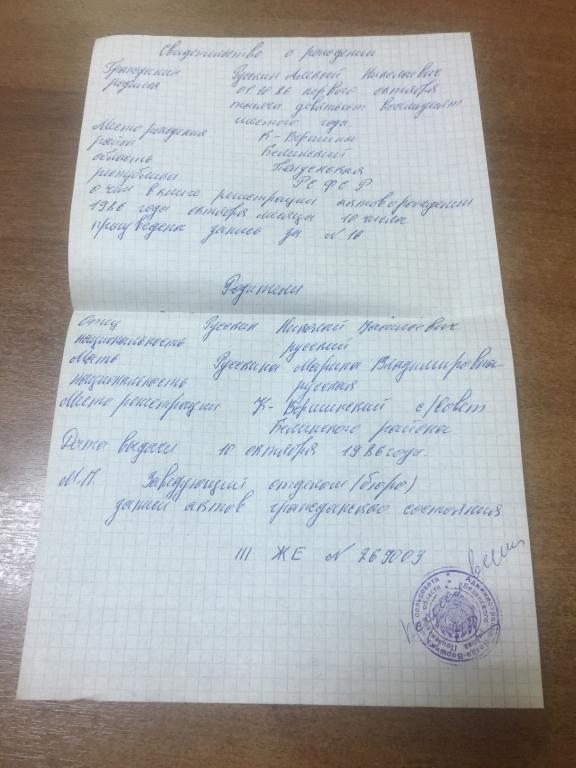 Свидетельство о рождении
Гражданин Русскин Алексей Николаевич
родился 01.10.86 первого октября
тысяча девятьсот восемьдесят
шестого года
Место рождения К-Вершины
район Белинский
область Пензенская
республика РСФСР
о чем в книге регистрации актов о рождении
1986 года октября месяца 10 числа
произведена запись за N 16
Родители
Отец Русскин Николай
национальность русский
Мать Русскина Марина Владимировна
национальность русская
Место регистрации К-Вершинский с/Совет
Белинского района
Дата выдачи 10 октября 1986 года.
М.П. Заведующий отделом (бюро)
записи актов гражданского состояния
III ЖЕ N 269003